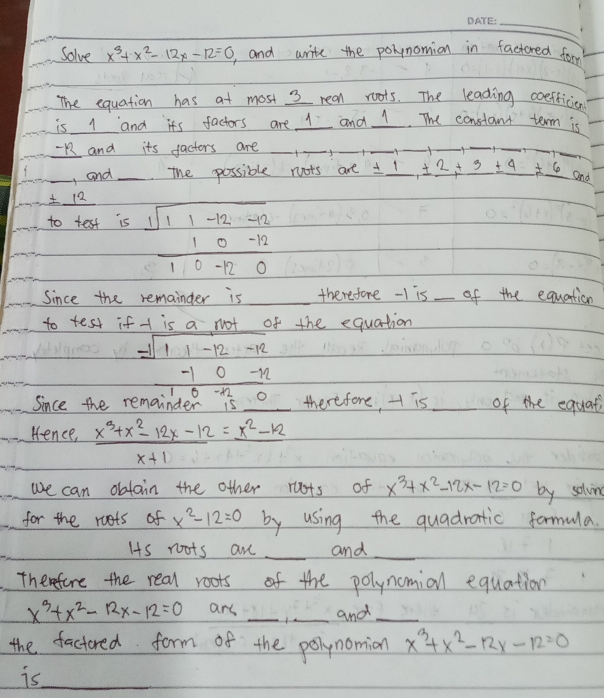 DATE:
Solve x³+x²-12x-12=0, and write the polynomial in factored form
The equation has at most 3 real roots. The leading coefficient
is 1 and its factors are 1 and 1. The constant term is
-12 and its factors are __,__,__,__,__,__,__
__, and __. The possible roots are ±1, ±2, ±3 ±4 ±6 and
± 12
to test is 1 | 1 1 -12 -12
1 0 -12
1 0 -12 0
Since the remainder is ____ therefore -1 is __ of the equation
to test if -1 is a root of the equation
-1 | 1 1 -12 -12
-1 0 -12
1 0 -12 0
Since the remainder is ___ therefore, -1 is ___ of the equati
Hence, x³+x²-12x-12 = x²-12
x+1
We can obtain the other roots of x³+x²-12x-12=0 by solving
for the roots of x²-12=0 by using the quadratic formula.
Its roots are ___ and ___
Therefore the real roots of the polynomial equation
x³+x²-12x-12=0 are __, __ and ___
the factored form of the polynomial x³+x²-12x-12=0
is ____